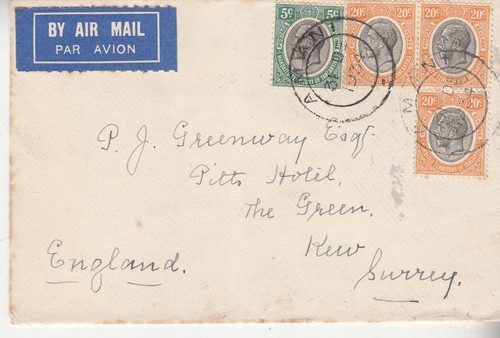 BY AIR MAIL
PAR AVION
5c
20c 20c
20c
P. J. Greenway Esqr.
Pitts Hotel,
The Green,
Kew
Surrey.
England.